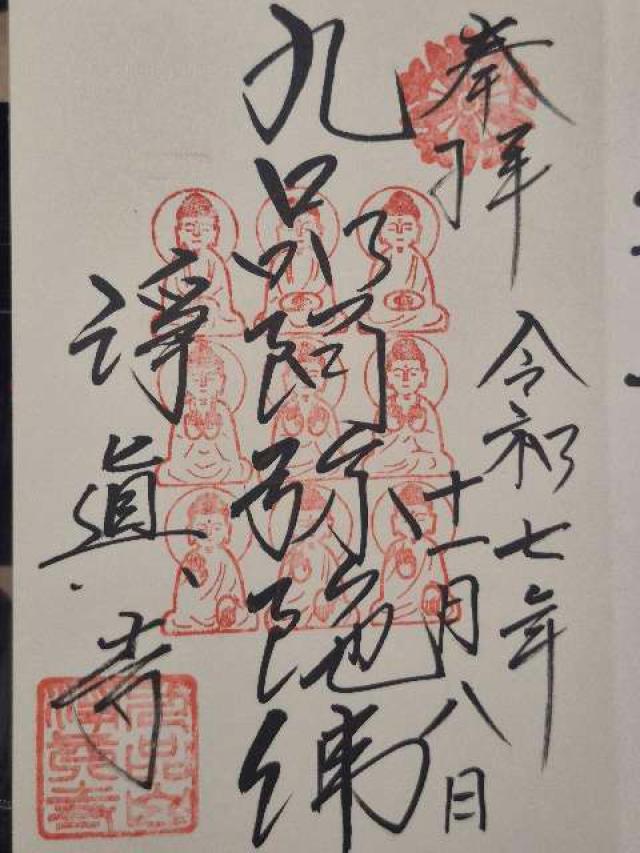 奉拝
令和七年
十一月八日
九品阿弥陀佛
淨眞寺